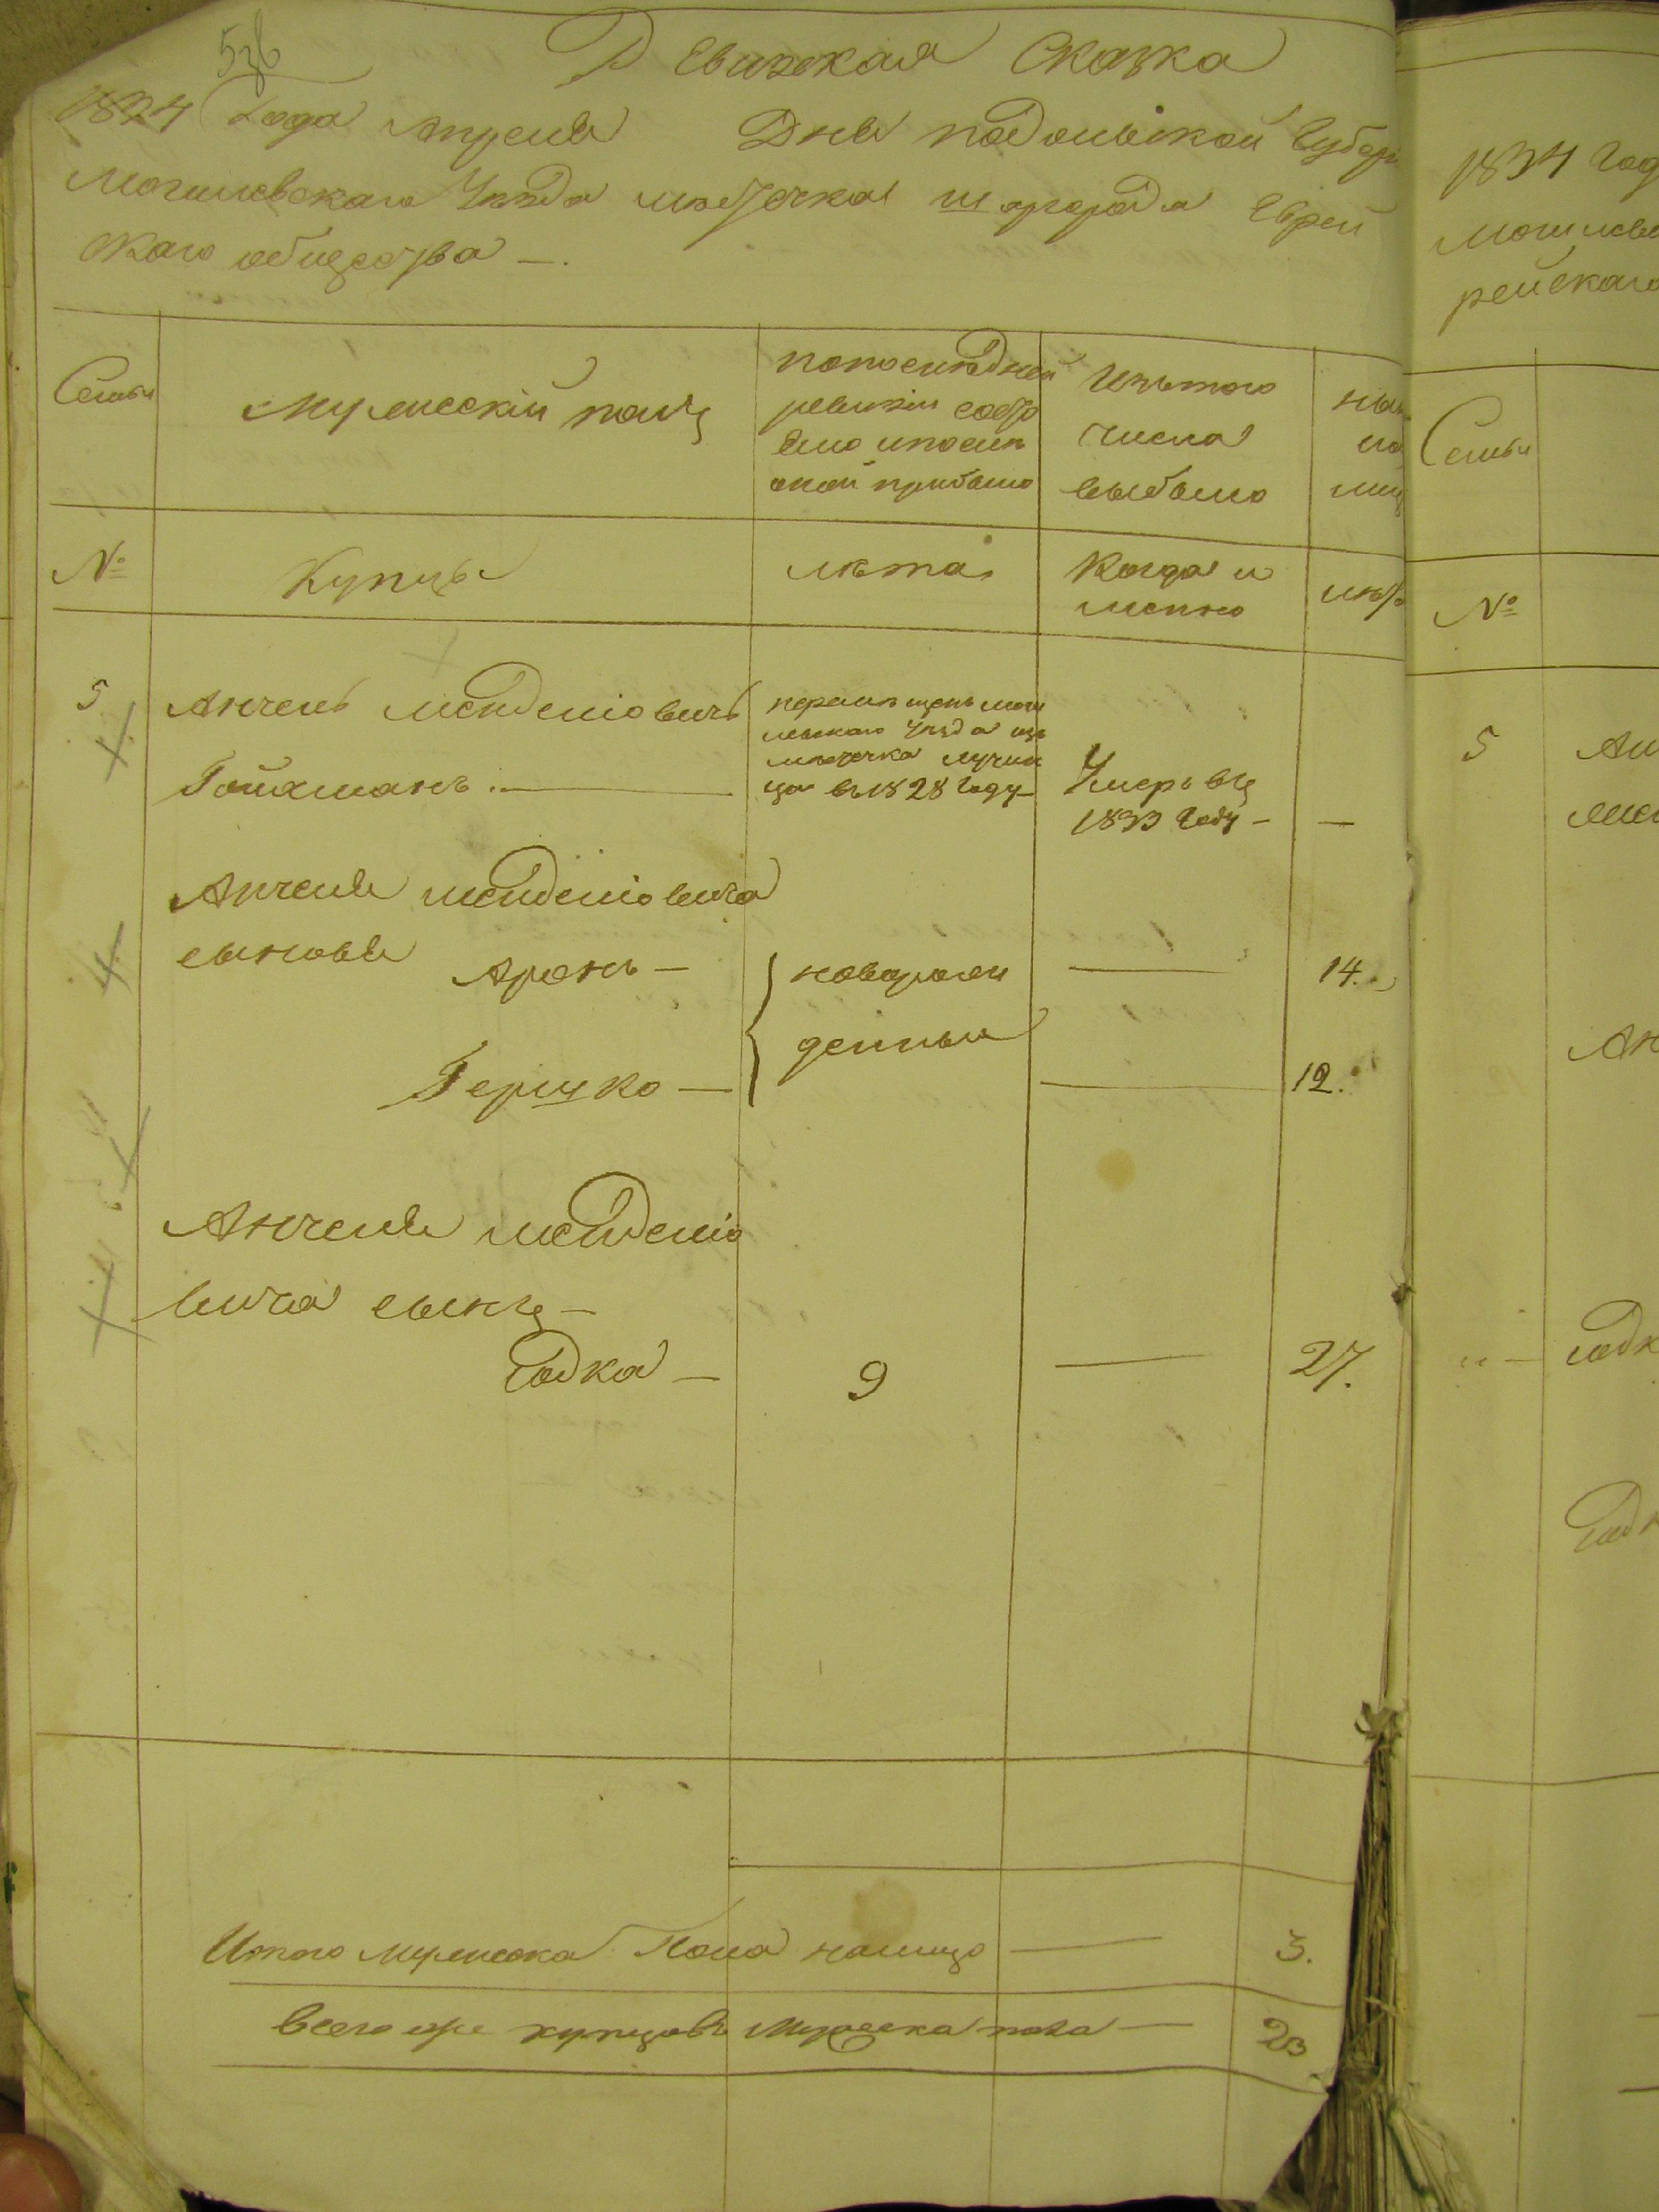 Ревизская Сказка
1834 года апреля Дня подольской губер
Могилевскаго Уезда местечка шаргорода Еврей
скаго общества —.
Семьи
Мужескій полъ
по последней
ревизіи состо
яло и после
оной прибыло
Изъ того
числа
выбыло
№
Купцы
лѣта
Когда и
именно
лѣта
5
Анчель Менделіовичъ
Гойхманъ. —
перемѣщенъ моги
левскаго уѣзда изъ
мѣстечка лучин
ца въ 1828 году
Умеръ въ
1833 году — —
Анчеля Менделіовича
сыновья Аронъ —
новорож
— 14.
денные
Гершко — — 12.
Анчеля Менделіо
вича сынъ —
Іодка — 9 — 27.
Итого мужеска пола налицо — 3.
Всего же купцовъ мужеска пола — 23
1834 год
могилев
рейскаго
Семьи
№
5